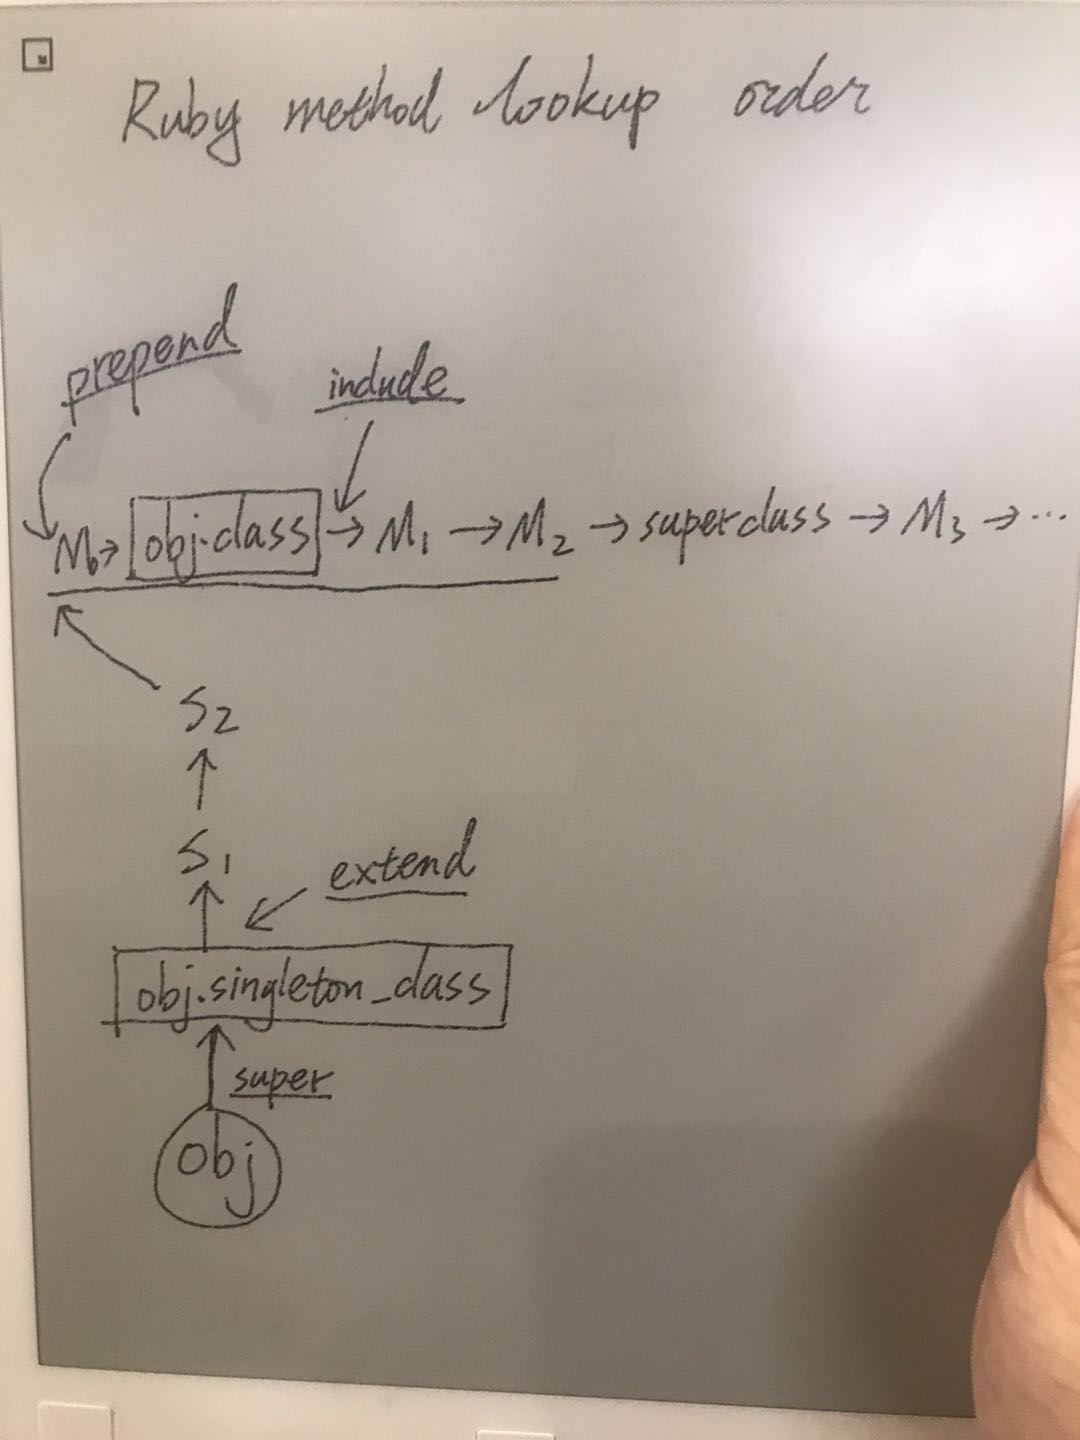 Ruby method lookup order
prepend
include
M₀→ obj.class → M₁ → M₂ → superclass → M₃ → ...
S₂
S₁
extend
obj.singleton_class
super
obj